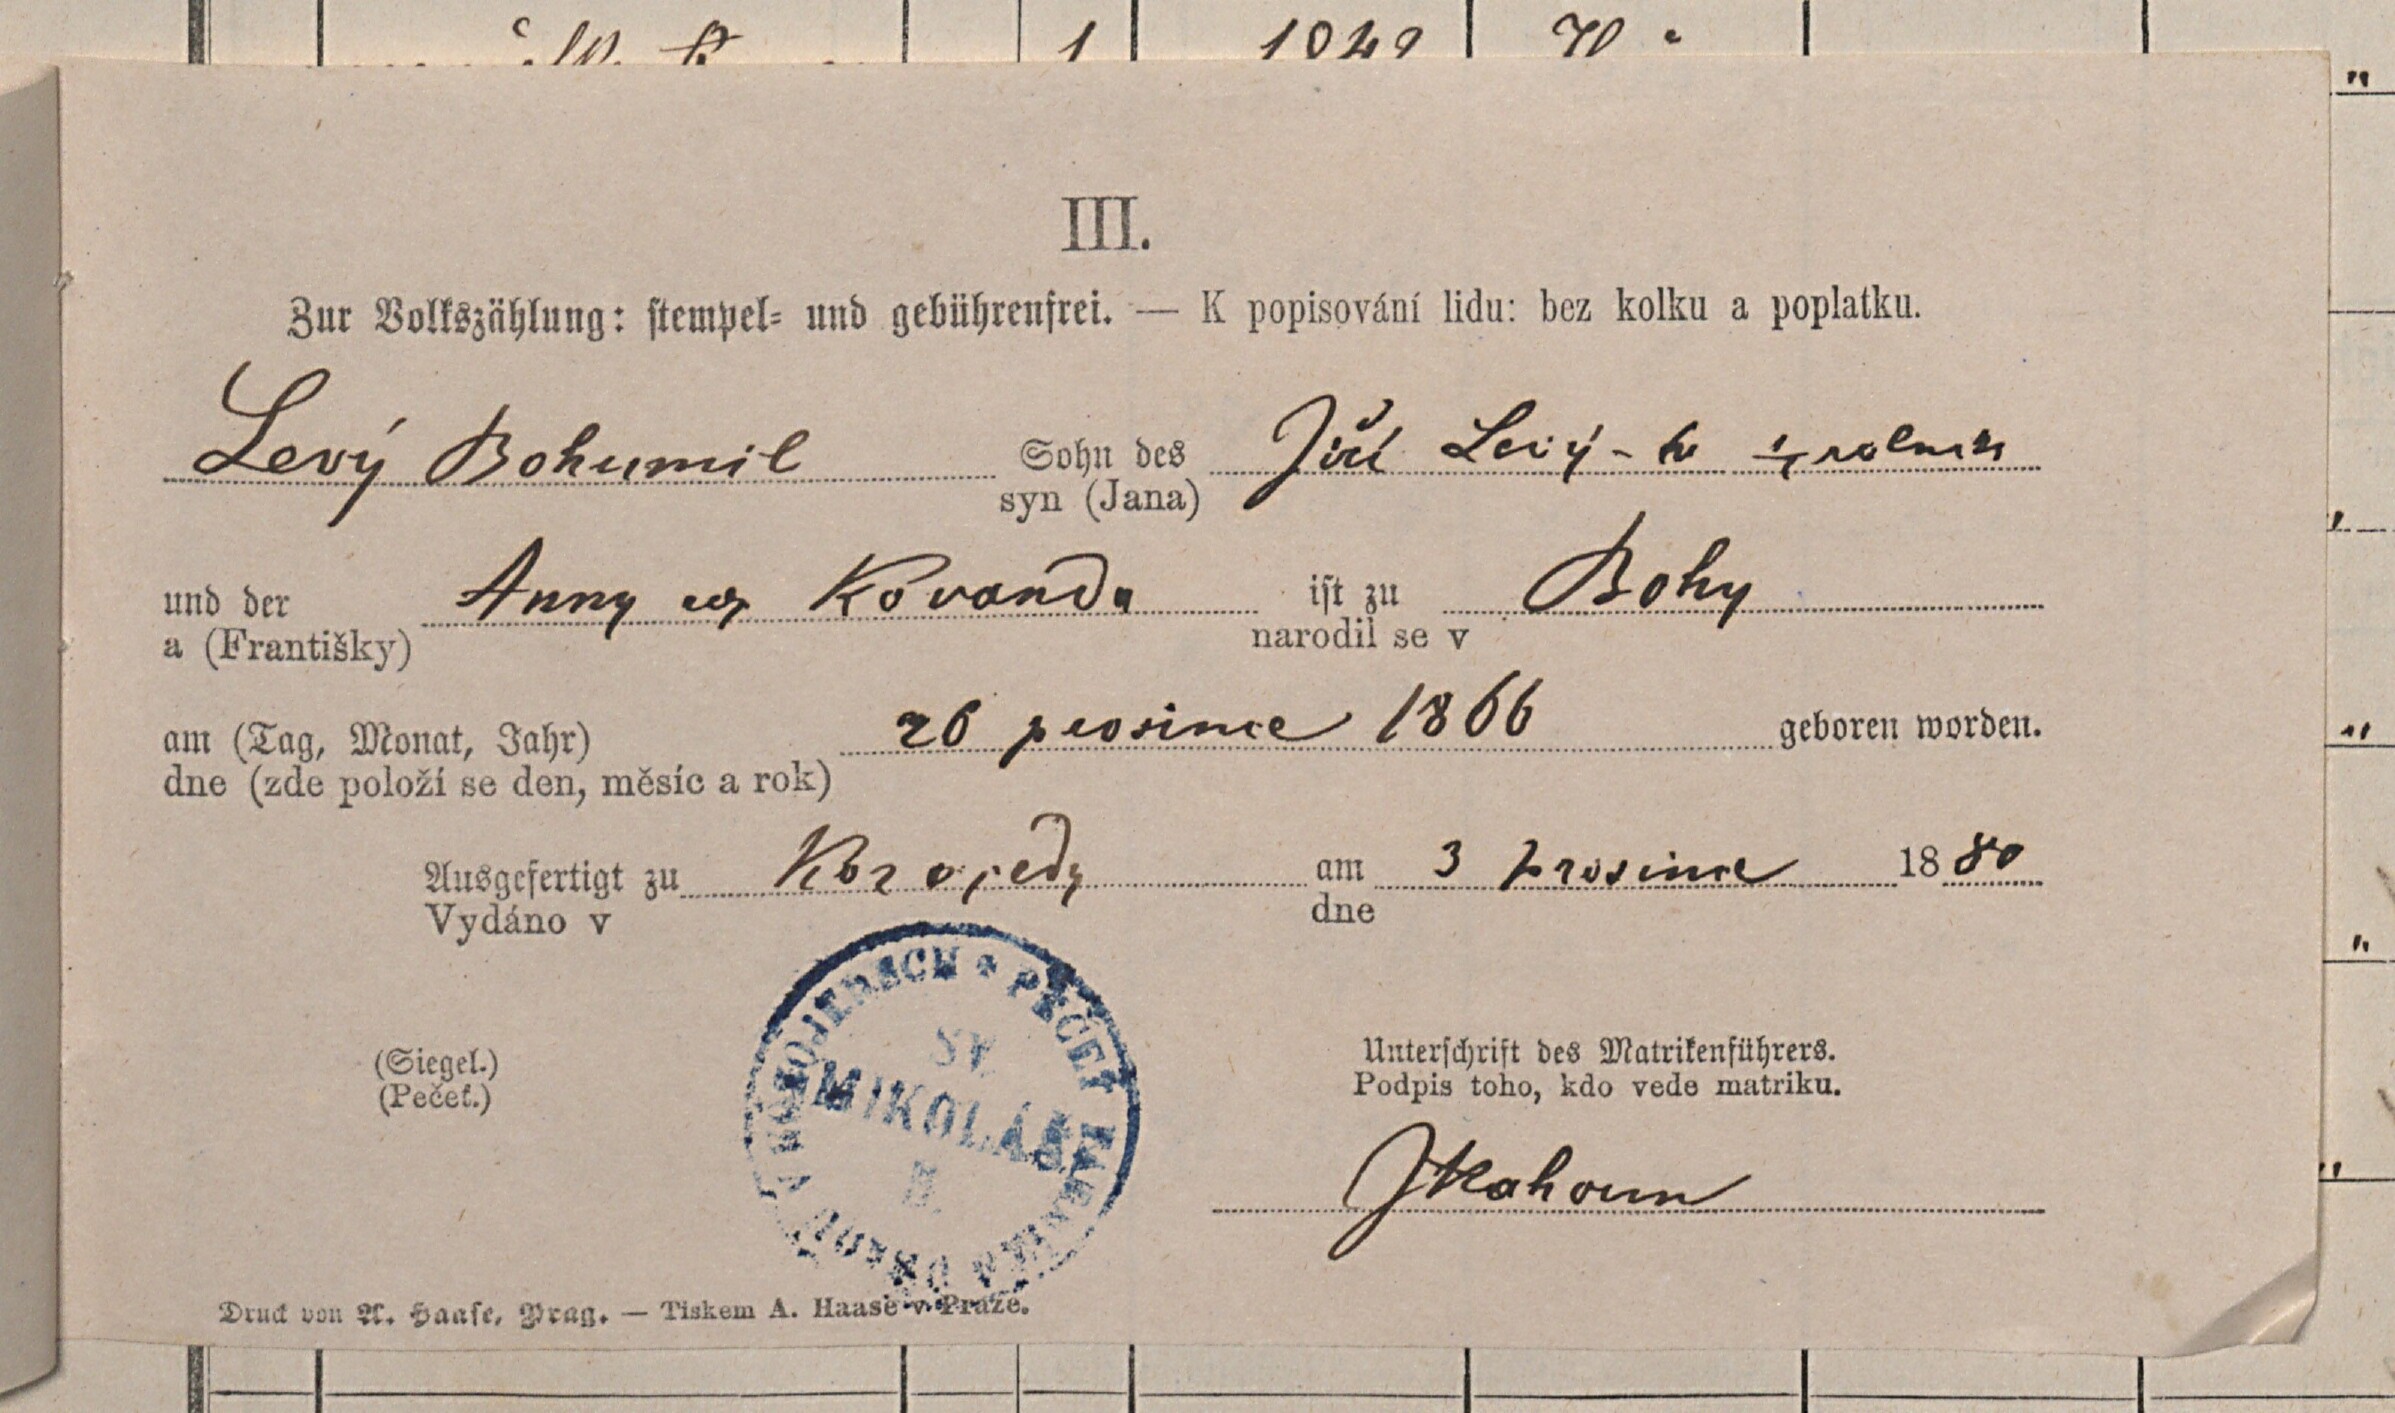 1
III.
Zur Volkszählung: stempel- und gebührenfrei. — K popisování lidu: bez kolku a poplatku.
Levý Bohumil Sohn des Jiří Levý-ho
syn (Jana)
und der Anny Kovanda ist zu Bohy
a (Františky) narodil se v
am (Tag, Monat, Jahr) 26 prosince 1866 geboren worden.
dne (zde položí se den, měsíc a rok)
Ausgefertigt zu Kozojedy am 3 prosince 1880
Vydáno v dne
V KOZOJEDECH * PEČEŤ
SV.
MIKOLÁŠ
(Siegel.) Unterschrift des Matrikenführers.
(Pečeť.) Podpis toho, kdo vede matriku.
JKahoun
Druck von A. Haase, Prag. — Tiskem A. Haase v Praze.